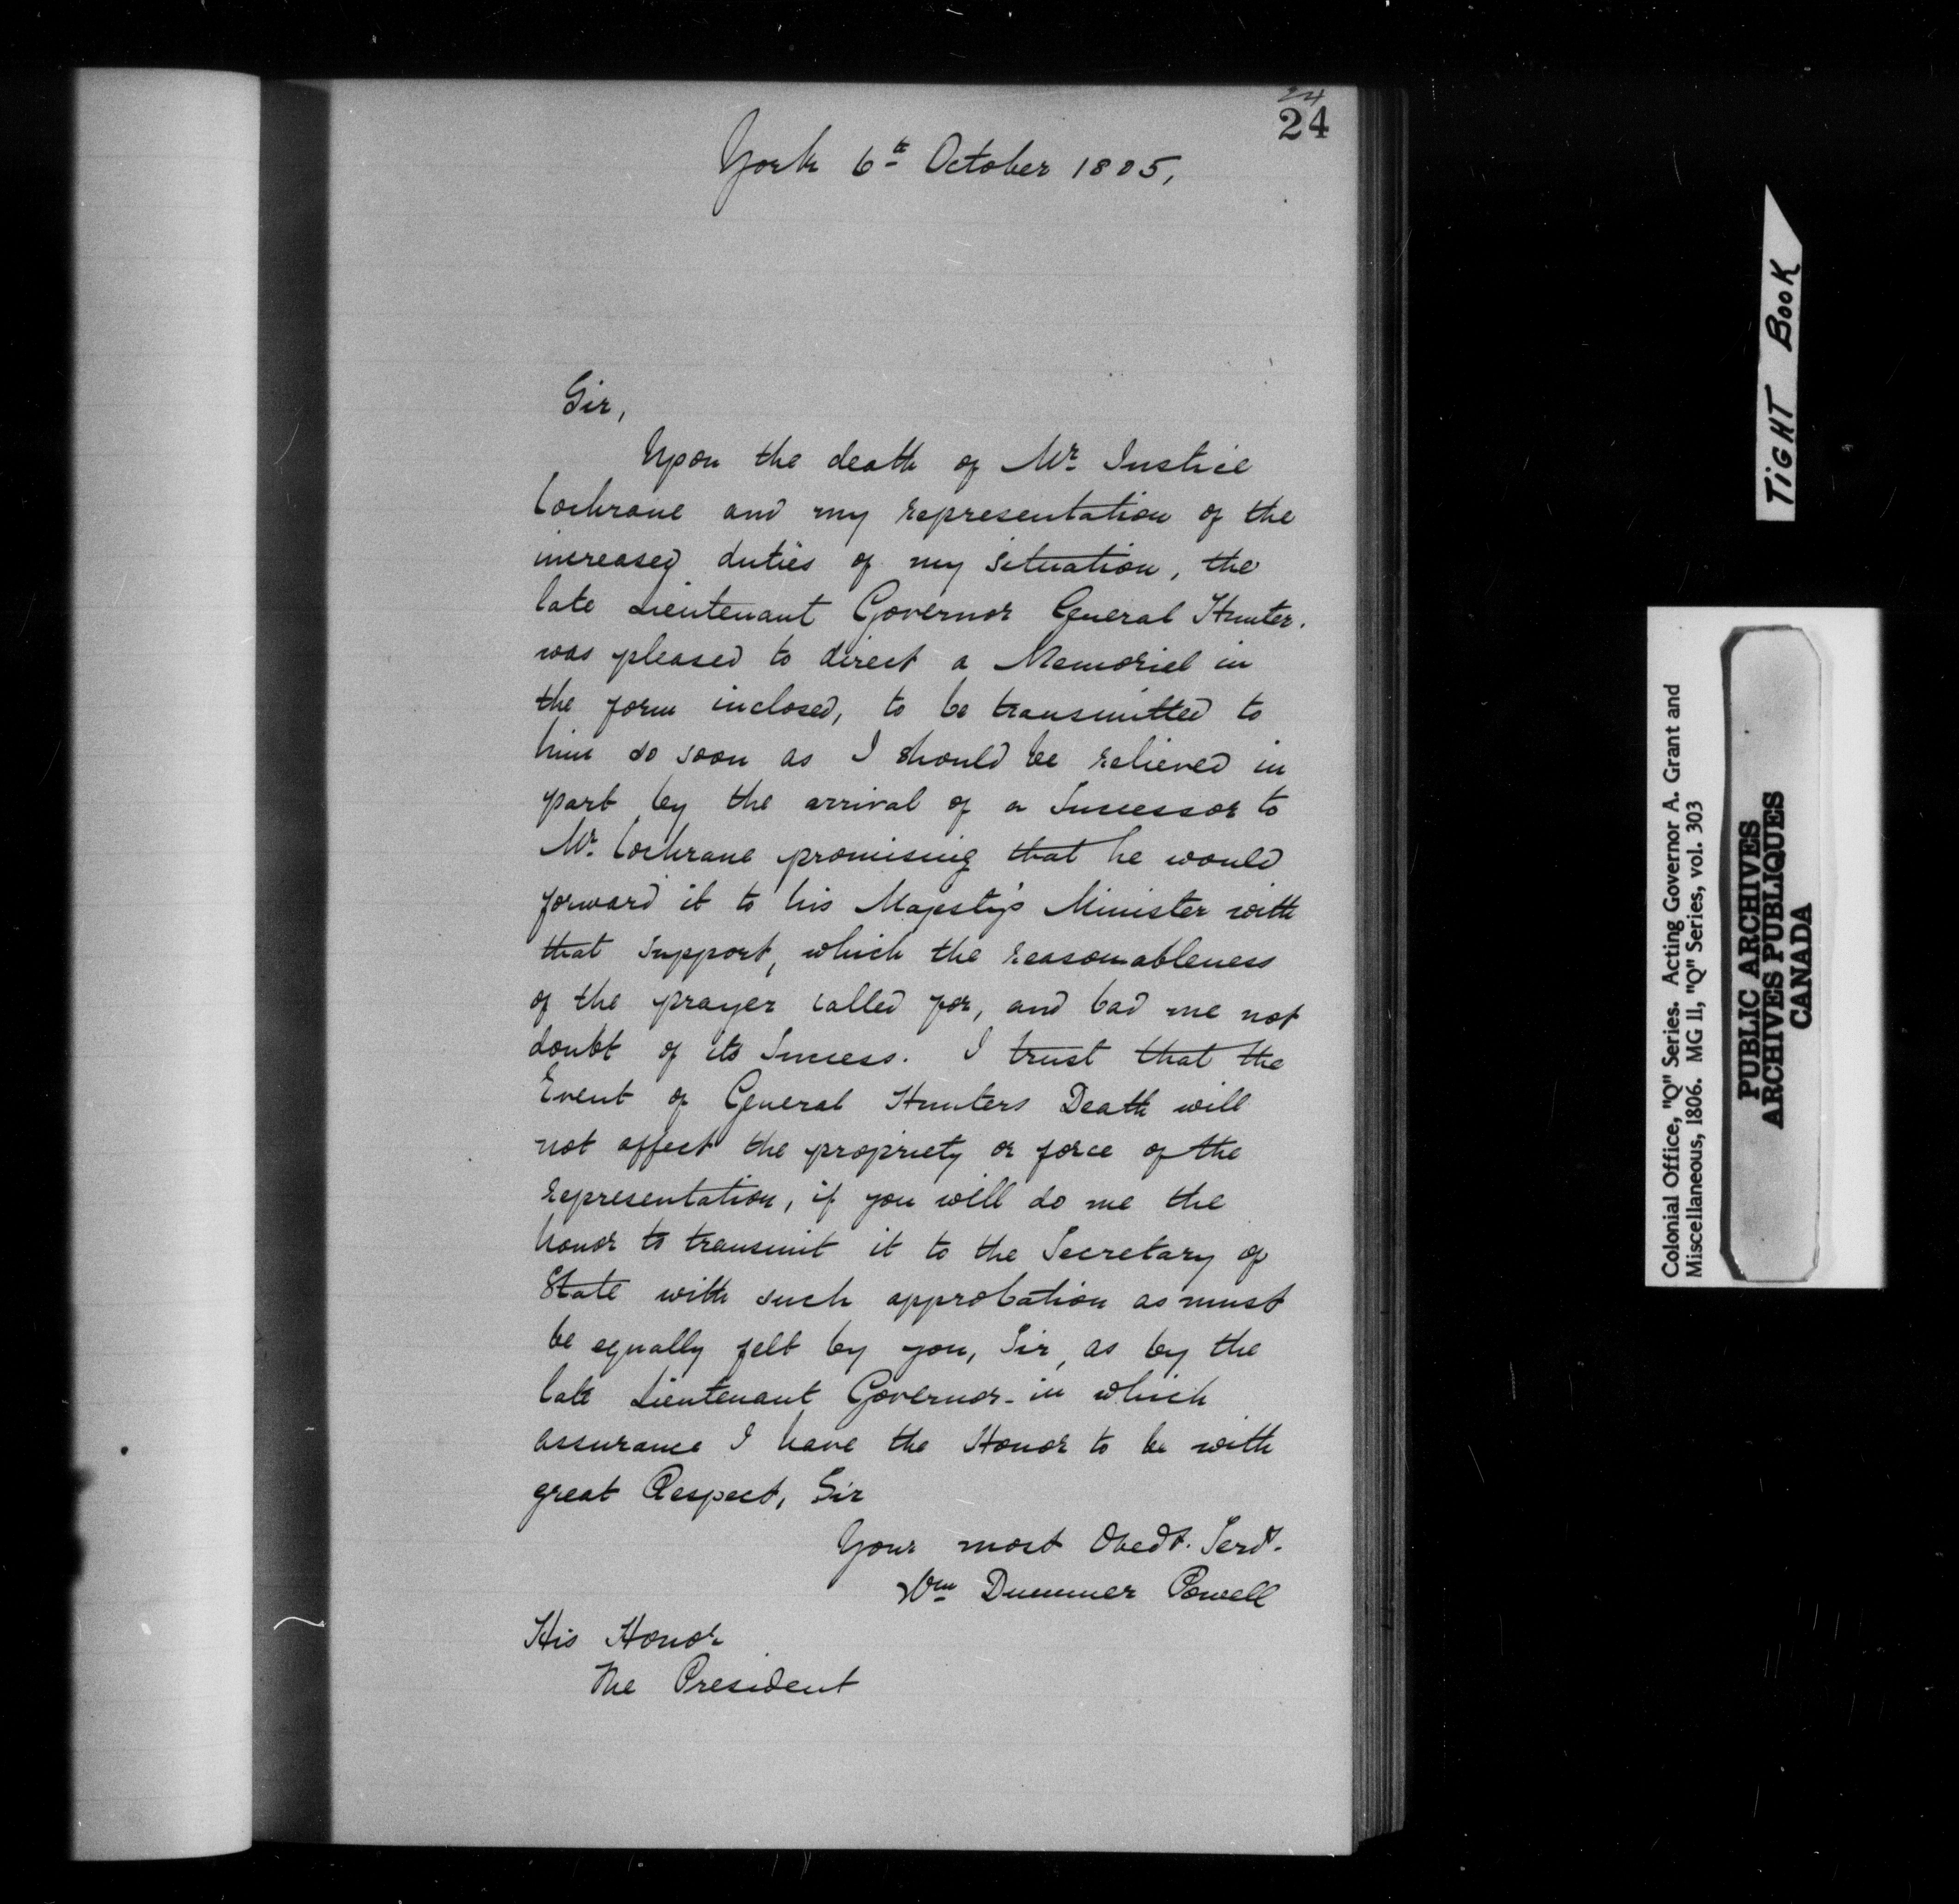 24
24
York 6th October 1805,
Sir,
Upon the death of Mr. Justice
Cochrane and my representation of the
increased duties of my situation, the
late Lieutenant Governor General Hunter.
was pleased to direct a Memorial in
the form inclosed, to be transmitted to
him so soon as I should be relieved in
part by the arrival of a Successor to
Mr. Cochrane promising that he would
forward it to his Majesty's Minister with
that support, which the reasonableness
of the prayer called for, and bad me not
doubt of its Success. I trust that the
Event of General Hunters Death will
not affect the propriety or force of the
representation, if you will do me the
honor to transmit it to the Secretary of
State with such approbation as must
be equally felt by you, Sir, as by the
late Lieutenant Governor - in which
assurance I have the Honor to be with
great Respect, Sir
Your most Obedt. Servt.
Wm Dummer Powell
His Honor
The President
TIGHT BOOK
Colonial Office, "Q" Series. Acting Governor A. Grant and
Miscellaneous, 1806. MG 11, "Q" Series, vol. 303
PUBLIC ARCHIVES
ARCHIVES PUBLIQUES
CANADA